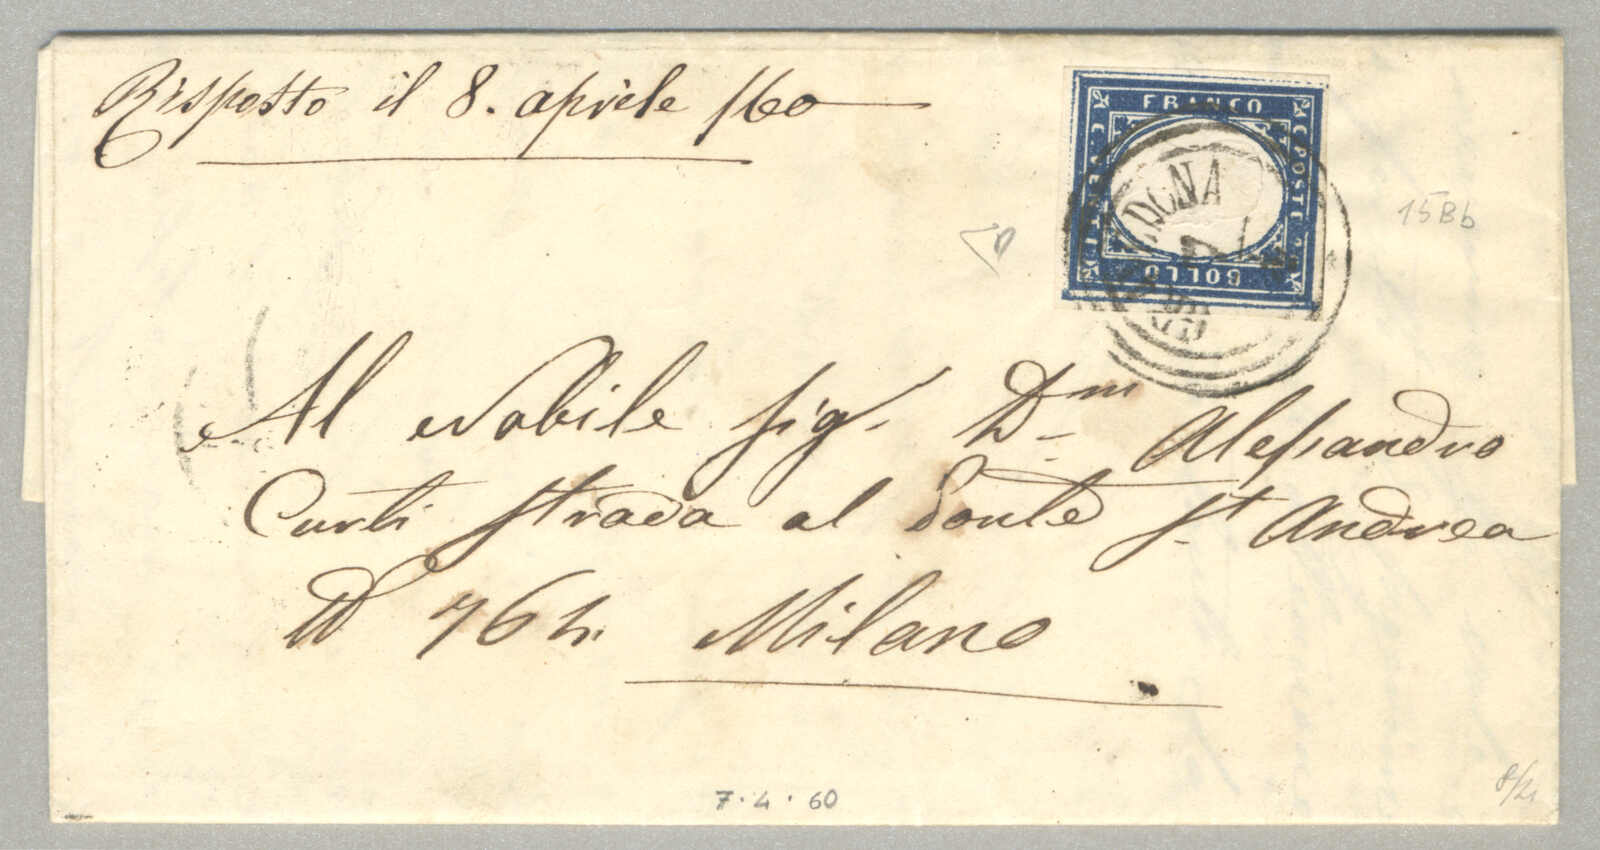 Risposto il 8. aprile /60
FRANCO
C. POSTE
BOLLO
C. VENTI
DONA
7
APR
60
15Bb
Al Nobile sig. Dn Alessandro
Curti strada al Ponte St Andrea
N 764. Milano
7.4.60